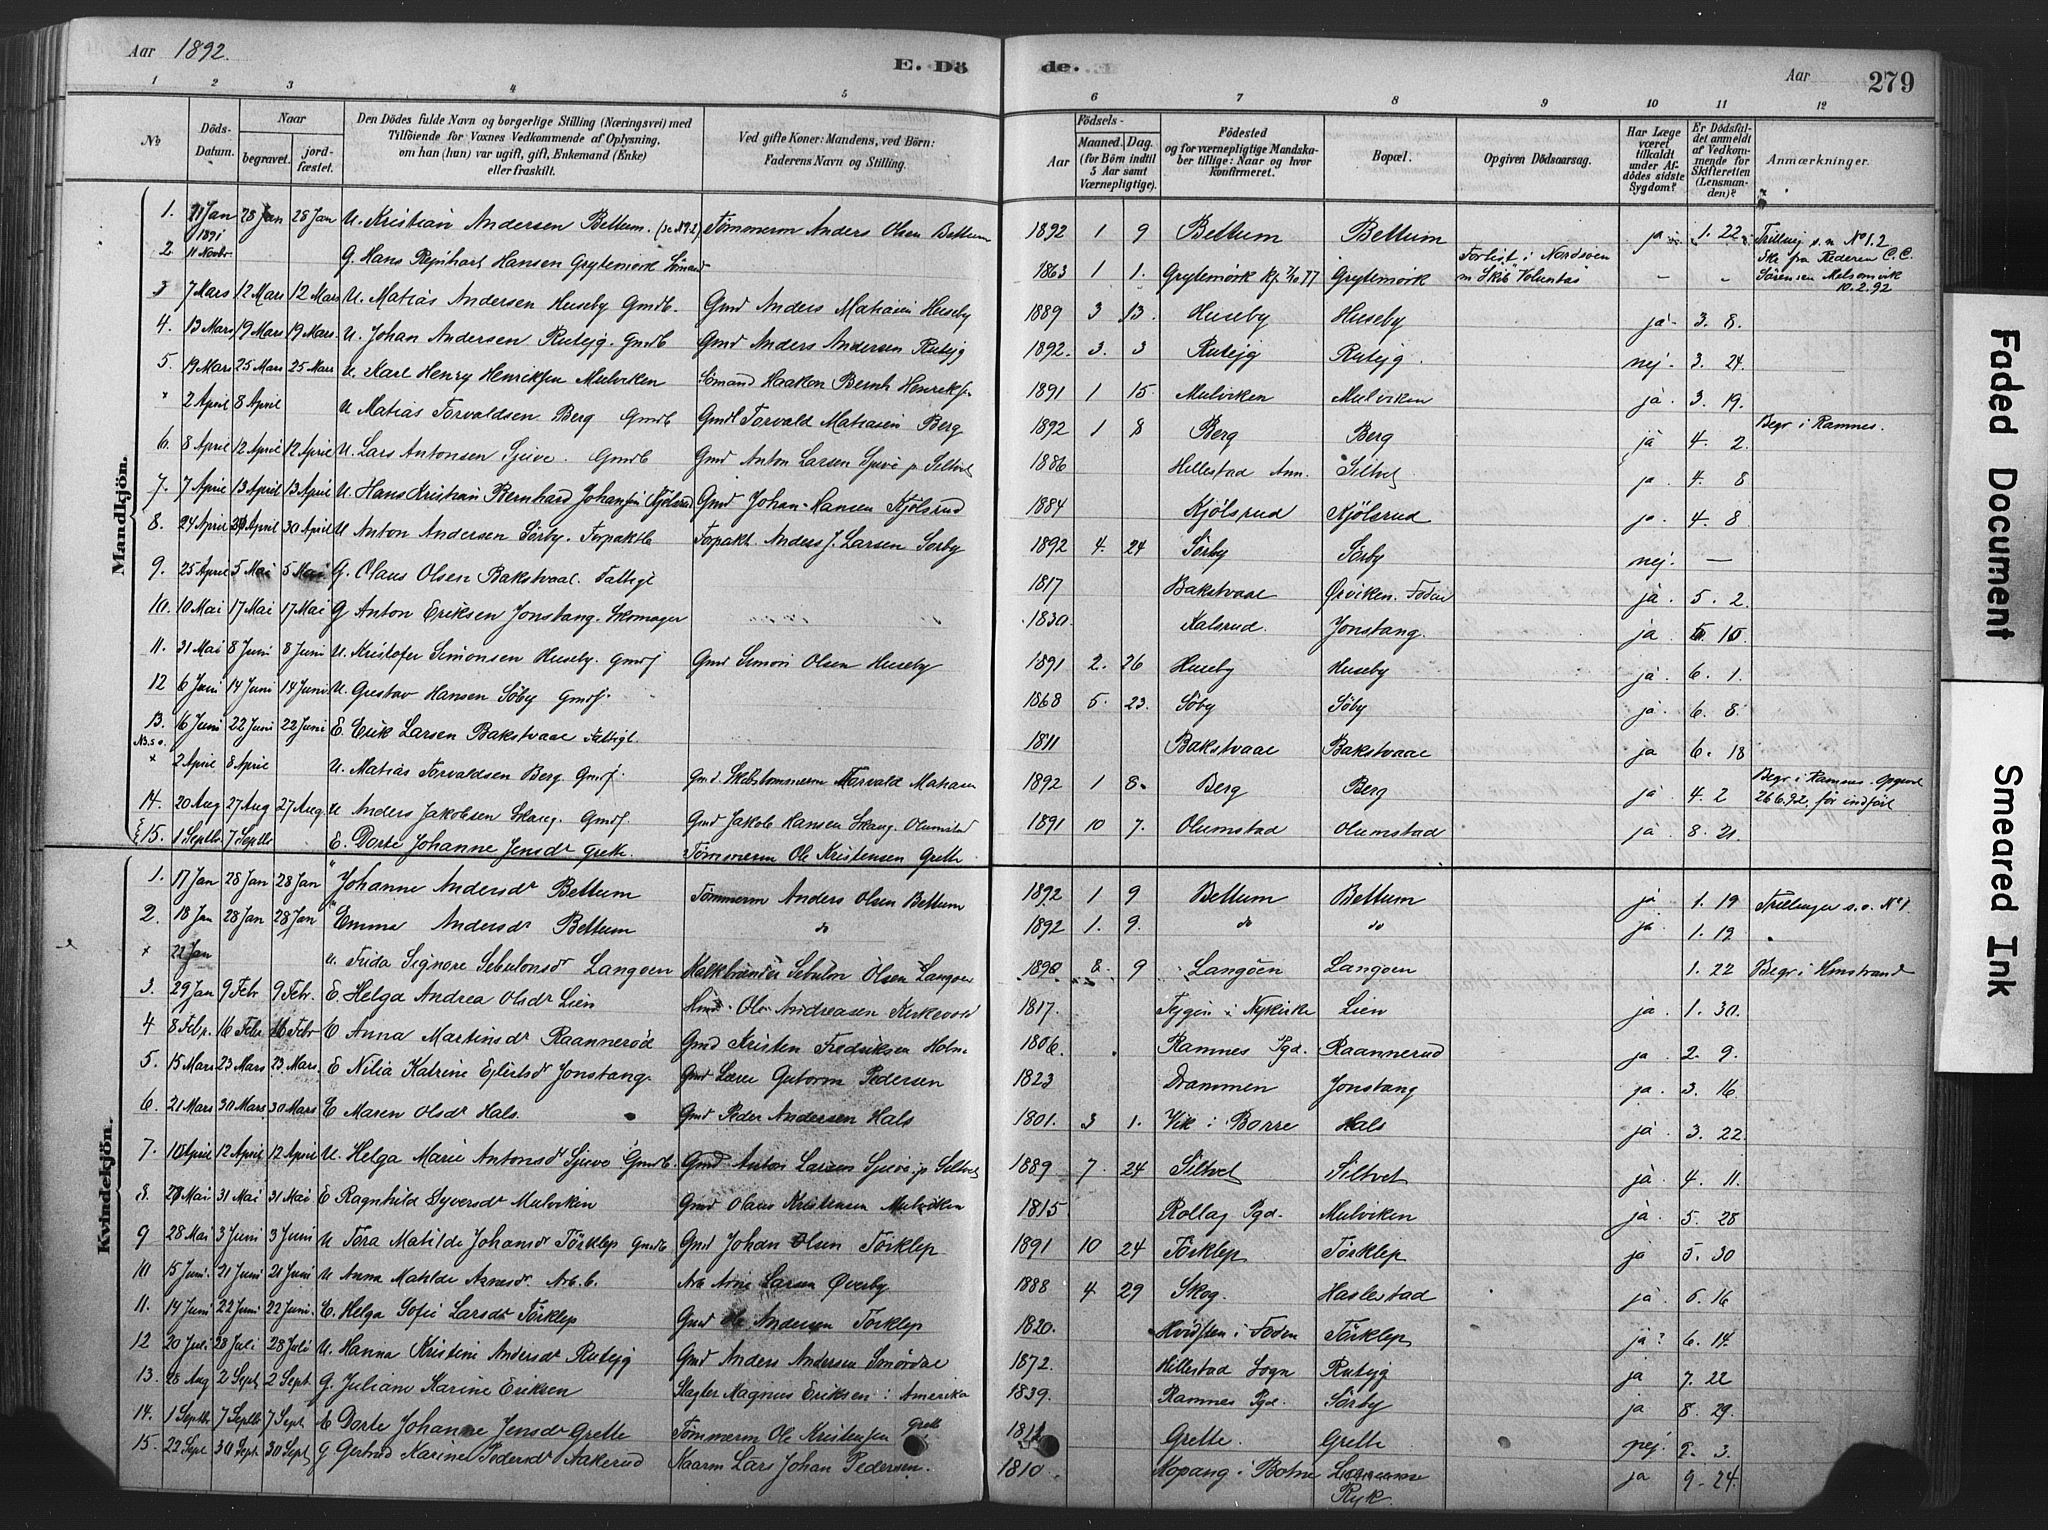 Aar 1892.
E. Dö
de.
Aar
279
1 2 3 4 5 6 7 8 9 10 11 12
No
Döds-Datum.
Naar
begravet.
jordfæstet.
Den Dödes fulde Navn og borgerlige Stilling (Næringsvei) med
Tilföiende for Voxnes Vedkommende af Oplysning,
om han (hun) var ugift, gift, Enkemand (Enke)
eller fraskilt.
Ved gifte Koner: Mandens, ved Börn:
Faderens Navn og Stilling.
Födsels-
Aar
Maaned. Dag.
(for Börn indtil
5 Aar samt
Værnepligtige).
Födested
og for værnepligtige Mandska-
ber tillige: Naar og hvor
konfirmeret.
Bopæl.
Opgiven Dödsaarsag.
Har Læge
været
tilkaldt
under Af-
dödes sidste
Sygdom?
Er Dödsfal-
det anmeldt
af Vedkom-
mende for
Skifteretten
(Lensman-
den)?
Anmærkninger.
Mandkjön.
1. 21 Jan 28 Jan 28 Jan U. Kristian Andersen Bettum. (se No 1.2) Tömmerm Anders Olsen Bettum 1892 1 9 Bettum Bettum ja 1. 22 Trilling s. n No 1.2
2. 1891 11 Novbr. G. Hans Reinhart Hansen Grytemörk Sömand 1863 1 1. Grytemörk Grytemörk Forlist i Nordsöen m Skib "Voluntas" – – Sörensen Melsomvik 10.2.92
3 7 Mars 12 Mars 12 Mars U. Matias Andersen Huseby Gmdb. Gmd Anders Matiasen Huseby 1889 3 13. Huseby Huseby ja. 3. 8.
4. 13 Mars 19 Mars 19 Mars U. Johan Andersen Rutejg. Gmdb Gmd Anders Andersen Rutejg 1892. 3. 3 Rutejg Rutejg. nej. 3. 24.
5. 19 Mars 25 Mars 25 Mars U. Karl Henry Henriksen Mulviken Sömand Haakon Bernh Henriksen 1891 1 15. Mulviken Mulviken ja. 3. 19.
" 2 April 8 April U Matias Torvaldsen Berg Gmdb Gmdb Torvald Matiasen Berg 1892 1 8 Berg Berg ja 4. 2. Begr i Ramnes.
6. 8 April 12 April 12 April U. Lars Antonsen Sjuve. Gmdb Gmd Anton Larsen Sjuve p Siltvet 1886 Hillestad Ann. Siltvet ja. 4. 8
7. 7 April 13 April 13 April U. Hans Kristian Bernhard Johansen Kjölsrud Gmd Johan Hansen Kjölsrud 1884 Kjölsrud Kjölsrud ja. 4. 8
8. 24 April 30 April 30 April U Anton Andersen Sörby. Forpaktb Forpakt. Anders J. Larsen Sörby 1892 4. 24 Sörby Sörby nej. —
9. 25 April 5 Mai 5 Mai G. Olaus Olsen Bakstvaal. Fattigl 1817 Bakstvaae Örviken. Foden ja. 5. 2.
10. 10 Mai 17 Mai 17 Mai G Anton Eriksen Jonstang. Skomager 1830. Kalsrud. Jonstang. ja. 5. 10
11. 31 Mai 8 Juni 8 Juni U. Kristofer Simonsen Huseby. Gmds. Gmd Simon Olsen Huseby 1891 2. 26 Huseby Huseby ja. 6. 1.
12 6 Juni 14 Juni 14 Juni U. Gustav Hansen Söby Gmds. 1868 5. 23. Söby Söby ja. 6. 8.
13. 16 Juni 22 Juni 22 Juni E. Erik Larsen Bakstvaae Fattigl. 1811 Bakstvaae Bakstvaae ja 6. 18
× 2 April 8 April U. Matias Torvaldsen Berg. Gmds. Gmd. Skibstömmerm Torvald Matiasen 1892 1 8. Berg Berg ja. 4. 2 Begr i Ramnes. Opgivet 26.6.92. för indfört
14. 20 Aug 27 Aug 27 Aug U Anders Jakobsen Skaug. Gmds. Gmd Jakob Hansen Skaug. Olumstad 1891 10 7. Olumstad Olumstad ja. 8. 21.
15. 1 Septb. 7 Septb E. Dorte Johanne Jensdr Grette. Tömmerm Ole Kristensen Grette
Kvindekjön.
1. 17 Jan 28 Jan 28 Jan "Johanne Andersdr Bettum Tömmerm Anders Olsen Bettum 1892 1 9 Bettum Bettum ja 1. 19 Trillinger s. o. No 1.
2. 18 Jan 28 Jan 28 Jan "Emma Andersdr Bettum do 1892 1. 9. do do ja. 1. 19 "
× 22 Jan U. Frida Signore Sebulonsdr Langöen Kalkbrænder Sebulon Olsen Langöen 1890 8. 9 Langöen Langöen 1. 22 Begr i Konstrand
3. 29 Jan 9 Febr 9 Febr. E Helga Andrea Olsdr Lien Hmd Ole Andreasen Kirkevold 1817. Tejgen i Nykirke Lien ja. 1. 30.
4 8 Febr. 16 Febr 16 Febr E Anna Martinsdr Raanneröd Gmd Kristen Fredriksen Holm 1806. Ramnes Pgd. Raannerud ja. 2. 9.
5. 15 Mars 23 Mars 23. Mars. E Nilia Katrine Ejlertsdr Jonstang. Gmd Lærer Gutorm Pedersen 1823 Drammen Jonstang ja. 3. 16.
6. 21 Mars 30 Mars 30 Mars E Maren Olsdr Hals. Gmd Peder Andersen Hals 1801. 3 1. Vik i Borre Hals ja. 3. 22.
7. 10 April 12 April 12 April U. Helga Marie Antonsdr Sjuve Gmdb. Gmd Anton Larsen Sjuve p Siltvet 1889 7. 24 Siltvet Siltvet ja. 4. 11.
8. 27 Mai 31 Mai 31 Mai E Ragnhild Syversdr Mulviken Gmd Olaus Kristensen Mulviken 1815 Rollag Pgd. Mulviken ja. 5. 28
9 28 Mai 3 Juni 3 Juni U Tora Matilde Johansdr Törklep Gmdb Gmd Johan Olsen Törklep 1891 10 24 Törklep Törklep ja 5. 30
10 15 Juni. 21 Juni 21 Juni U Anna Matilde Arnesdr. Arb. b. Arb Arne Larsen Överby 1888 4 29 Skog. Haslestad ja. 6. 16
11. 14 Juni 22 Juni 22 Juni. E. Helga Sofie Larsdr Törklep Gmd Ole Andersen Törklep 1820. Hvidsten i Foden Törklep ja? 6. 14.
12 20 Juli. 28 Juli 28 Juli U. Hanna Kristine Andersdr Rutejg Gmd Anders Andersen 1872. Hillestad Sogn Rutejg ja. 7. 22
13. 28 Aug 2 Sept 2 Sept. G. Juliane Karine Eriksen Slagter Magnus Eriksen i Amerika 1839. Ramnes Pgd. Sörby ja 8. 29.
14. 1 Septb 7 Septb 7 Sept. E Dorte Johanne Jensdr Grette Tömmerm Ole Kristensen Grette 1812 Grette. Grette nej. 9. 3.
15. 22 Sept 30 Sept. 30 Sept. G Gertrud Karine Pedersdr Aakerud Kaarm Lars Johan Pedersen. 1810. Kopang i Botne Ryk. ja 9. 24.
Faded Document
Smeared Ink